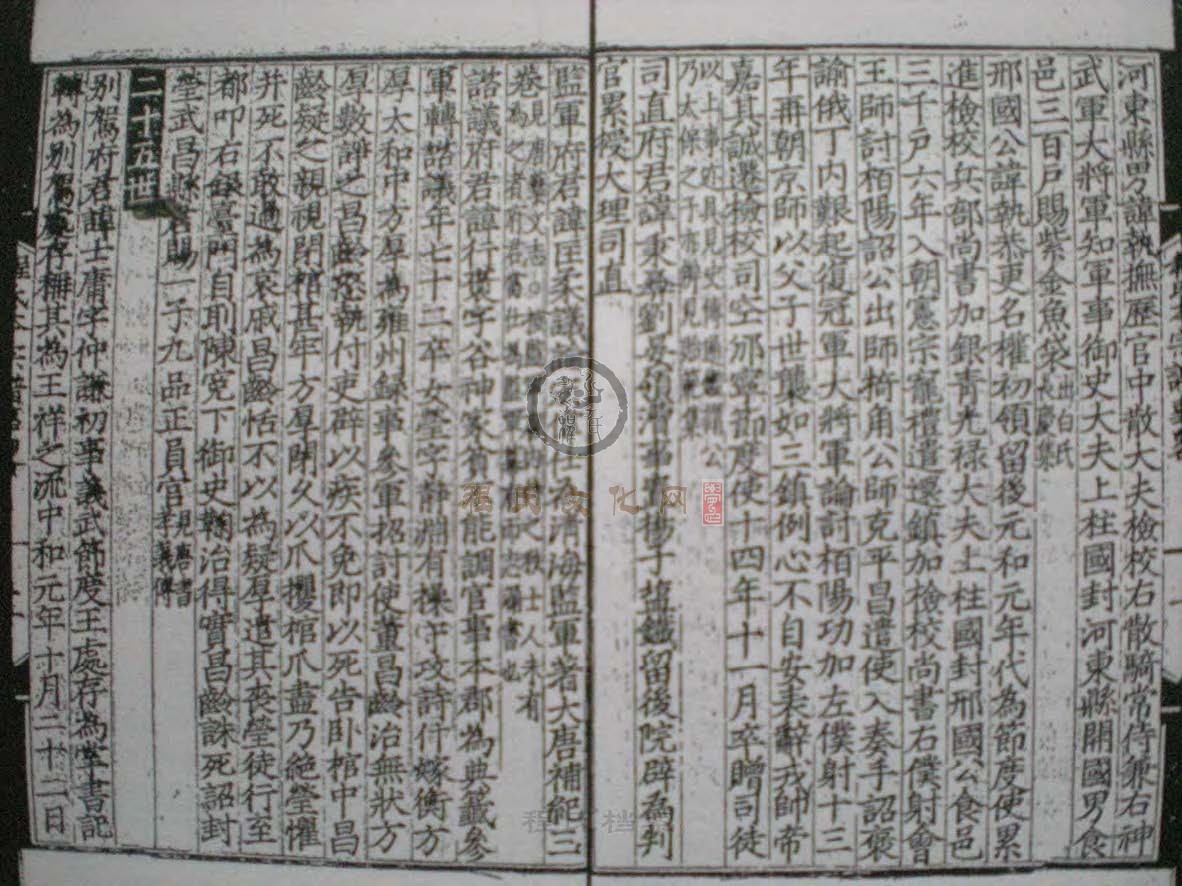 河東縣男諱執撫歷官中散大夫檢校右散騎常侍兼右神
武軍大將軍知軍事御史大夫上柱國封河東縣開國男食
邑三百戶賜紫金魚袋
邢國公諱執恭更名權領留後元和元年代為節度使累
進檢校兵部尚書加銀青光祿大夫上柱國封邢國公食邑
三千戶六年入朝憲宗寵禮遣還鎮加檢校尚書右僕射會
王師討栢陽詔公出師掎角公師克平昌遣使入奏手詔褒
諭俄丁內艱起復冠軍大將軍論討栢陽功加左僕射十三
年再朝京師以父子世襲如三鎮例心不自安乗辭戎帥帝
嘉其誠遷檢校司空邠寧節度使十四年十一月卒贈司徒
以上事迹具見史傳
乃太保之子
司直府君諱秉彝劉晏領漕事置揚子鹽鐵留後院辟為判
官累授大理司直
監軍府君諱匡柔議仕為清海監軍著大唐補紀三
卷見唐藝文志
諮議府君諱行褒字谷神家貧能調官事本郡為典籤參
軍轉諮議年七十二卒女瑩字青淵有操守攻詩什嫁衡方
厚太和中方厚為雍州錄事參軍招討使董昌齡治無狀方
厚數諍之昌齡怒執付吏辟以疾不免即以死告卧棺中昌
齡疑之親視閉棺甚牢方厚閉久以爪攫棺爪盡乃絕瑩懼
并死不敢過為哀戚昌齡恬不以為疑厚遣其喪瑩徒行至
都叩右銀臺門自刵陳寃下御史鞫治得實昌齡誅死詔封
瑩武昌縣君賜一子九品正員官見唐書孝義傳
二十五世
別駕府君諱士庸字仲謙初事義武節度王處存為掌書記
轉為別駕處存稱其為王祥之流中和元年十月二十二日
福民文化网